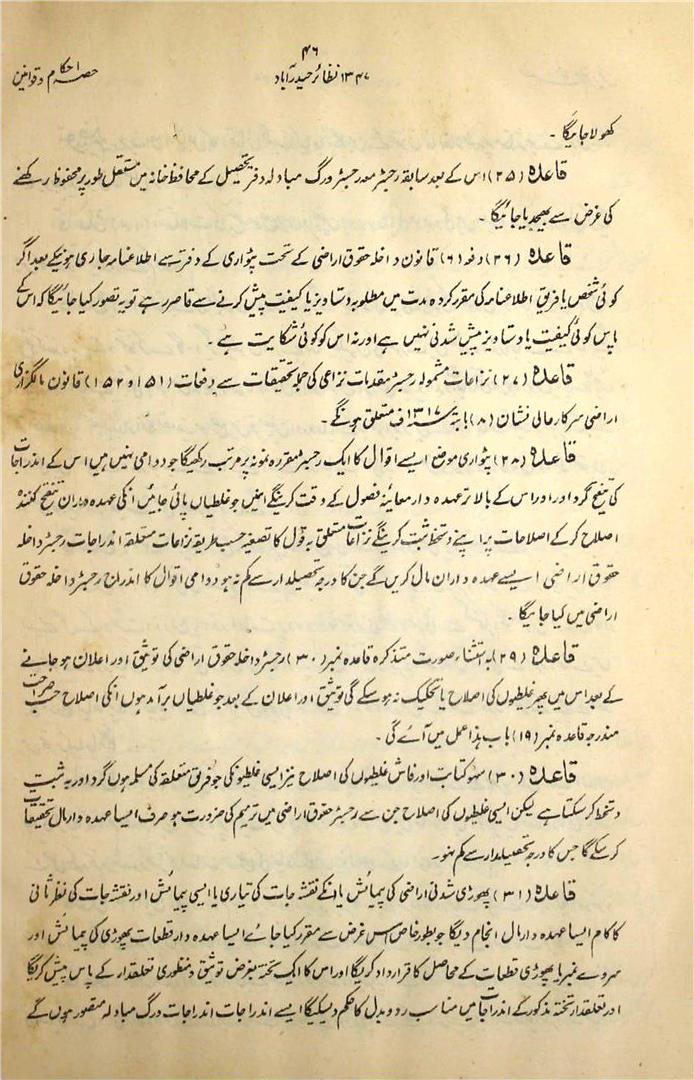 ۴۶
۱۳۴۷ نظائر حیدرآباد
حصہ احکام و قوانین
کھولا جائیگا ۔
قاعدہ (۲۵) اس کے بعد سابقہ رجسٹر معہ رجسٹر ورگ مبادلہ دفتر تحصیل کے محافظ خانہ میں مستقل طور پر محفوظ رکھنے
کی غرض سے بھیجدیا جائیگا ۔
قاعدہ (۲۶) دفعہ (۶) قانون داخلہ حقوق اراضی کے تحت پٹواری کے دفتر سے اطلاعنامہ جاری ہونیکے بعد اگر
کوئی شخص یا فریق اطلاعنامہ کی مقرر کردہ مدت میں مطلوبہ دستاویز یا کیفیت پیش کرنے سے قاصر رہے تو یہ تصور کیا جائیگا کہ اس کے
پاس کوئی کیفیت یا دستاویز پیش شدنی نہیں ہے اور نہ اس کو کوئی شکایت ہے ۔
قاعدہ (۲۷) نزاعات مشمولہ رجسٹر مقدمات نزاعی کی جملہ تحقیقات سے دفعات (۱۵۱ و ۱۵۲) قانون مالگزاری
اراضی سرکار عالی نشان (۸) بابتہ ۱۳۱۷ ف متعلق ہونگے ۔
قاعدہ (۲۸) پٹواری موضع ایسے اقوال کا ایک رجسٹر مقررہ نمونہ پر مرتب رکھیگا جو دوامی نہیں ہیں اس کے اندراجات
کی تنقیح گرداور اور اس کے بالاتر عہدہ دار معائنہ فصول کے وقت کرینگے انمیں جو غلطیاں پائی جائیں انکی عہدہ داران تنقیح کنندہ
اصلاح کر کے اصلاحات پر اپنے دستخط ثبت کرینگے نزاعات متعلق بہ قول کا تصفیہ حسب طریقہ نزاعات متعلقہ اندراجات رجسٹر داخلہ
حقوق اراضی ایسے عہدہ داران مال کریں گے جن کا درجہ تحصیلدار سے کم نہ ہو دوامی اقوال کا اندراج رجسٹر داخلہ حقوق
اراضی میں کیا جائیگا ۔
قاعدہ (۲۹) بہ استثناء صورت متذکرہ قاعدہ نمبر (۳۰) رجسٹر داخلہ حقوق اراضی کی توثیق اور اعلان ہو جانے
کے بعد اس میں پھر غلطیوں کی اصلاح یا تحکیک نہ ہو سکے گی توثیق اور اعلان کے بعد جو غلطیاں برآمد ہوں انکی اصلاح حسب صراحت
مندرجہ قاعدہ نمبر (۱۹) باب ہذا عمل میں آئے گی ۔
قاعدہ (۳۰) سہو کتابت اور فاش غلطیوں کی اصلاح نیز ایسی غلطیونکی جو فریق متعلقہ کی مسلمہ ہوں گرداور بہ ثبت
دستخط کر سکتا ہے لیکن ایسی غلطیوں کی اصلاح جن سے رجسٹر حقوق اراضی میں ترمیم کی ضرورت ہو صرف ایسا عہدہ دار مال تحقیقات
کر سکے گا جس کا درجہ تحصیلدار سے کم نہو ۔
قاعدہ (۳۱) پھوڑی شدنی اراضی کی پیمائش یا انکے نقشہ جات کی تیاری یا ایسی پیمائش اور نقشہ جات کی نظر ثانی
کا کام ایسا عہدہ دار مال انجام دیگا جو بطور خاص اس غرض سے مقرر کیا جائے ایسا عہدہ دار قطعات پھوڑی کی پیمائش اور
سروے نمبر یا پھوڑی قطعات کے محاصل کا قرارداد کریگا اور اس کا ایک تختہ بغرض توثیق و منظوری تعلقدار کے پاس پیش کریگا
اور تعلقدار تختہ مذکور کے اندراجات میں مناسب رد و بدل کا حکم دیسکیگا ایسے اندراجات اندراجات ورگ مبادلہ متصور ہوں گے